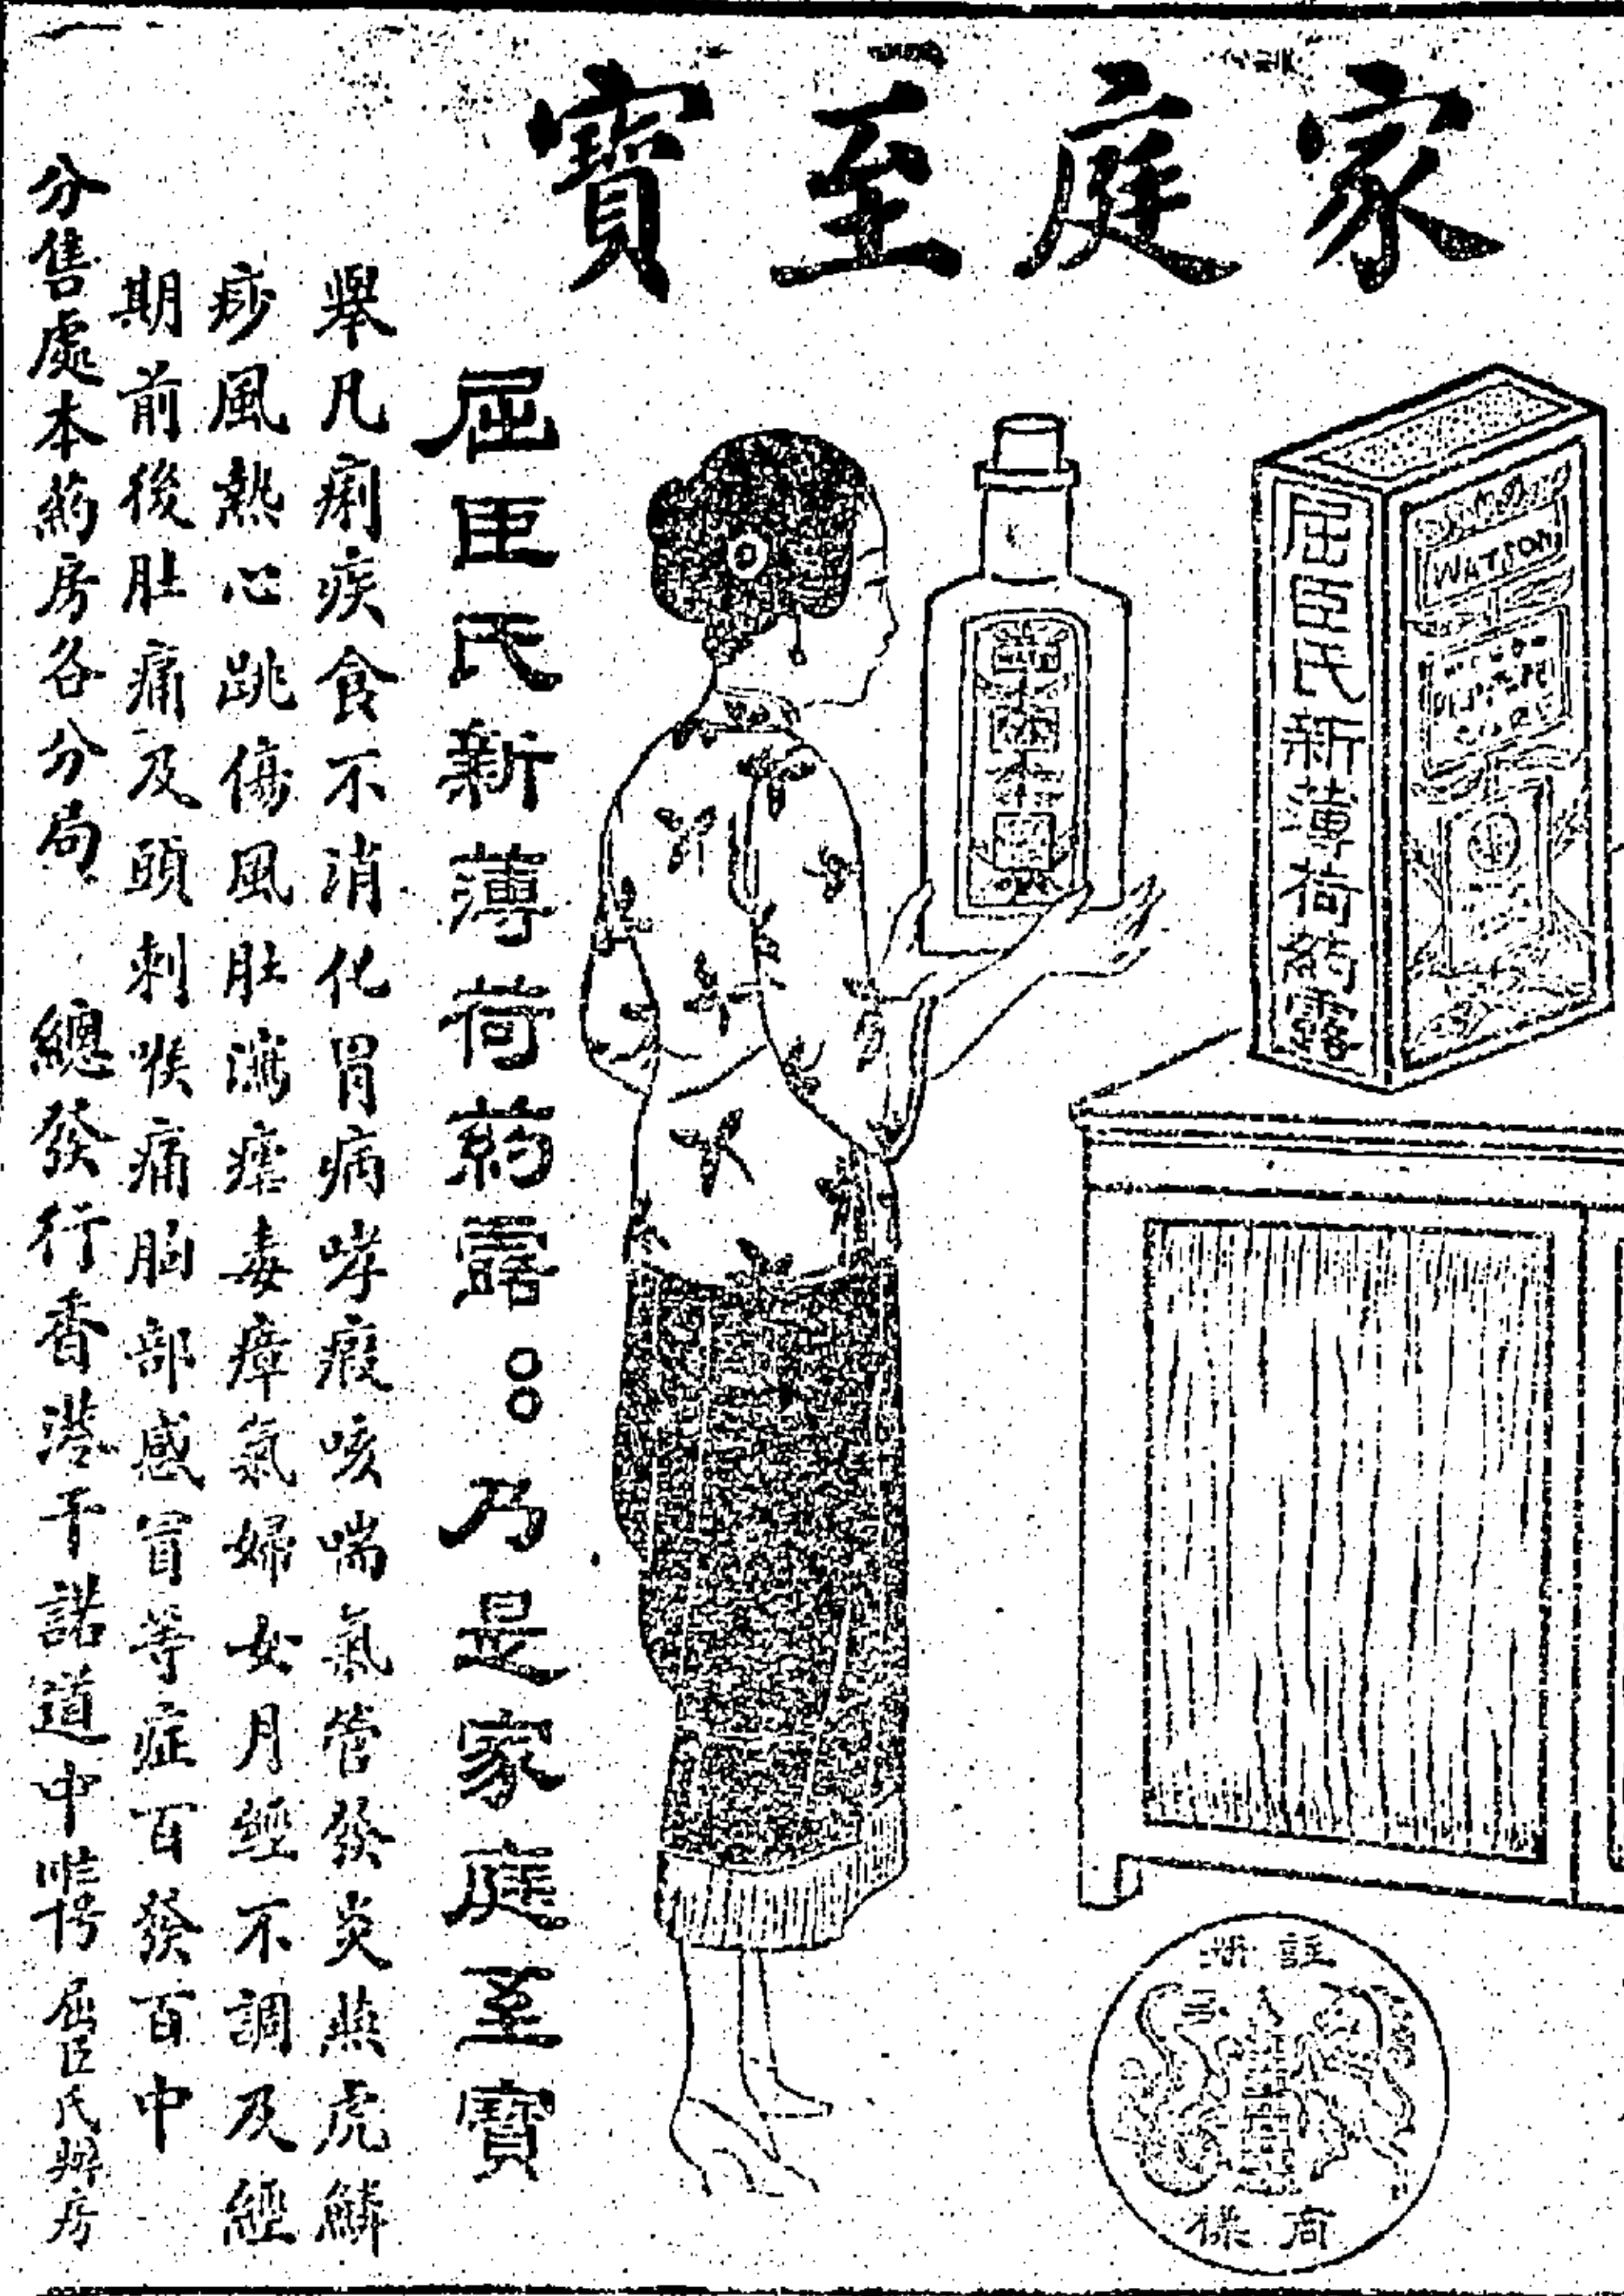 家庭至寶
屈臣氏新薄荷葯露
WATSON
屈臣氏新薄荷葯露。。乃是家庭至寶
舉凡痢疾食不消化胃病哮瘕咳喘氣管發炎燕虎鱗
痧風熱心跳傷風肚瀉瘧毒瘴氣婦女月經不調及經
期前後肚痛及頭刺喉痛胸部感冒等症百發百中
分售處本葯房各分局 總發行香港干諾道中 屈臣氏葯房
註冊
商標